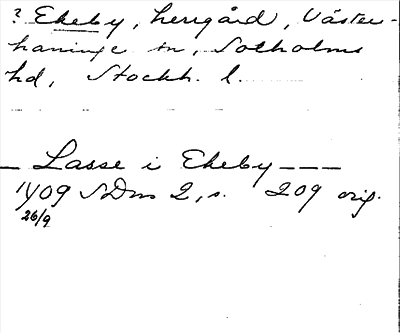 ? Ekeby, herrgård, Väster-
haninge sn, Sotholms
hd, Stockh. l.
— Lasse i Ekeby – – –
1409 SDns 2, s. 209 orig.
26/9